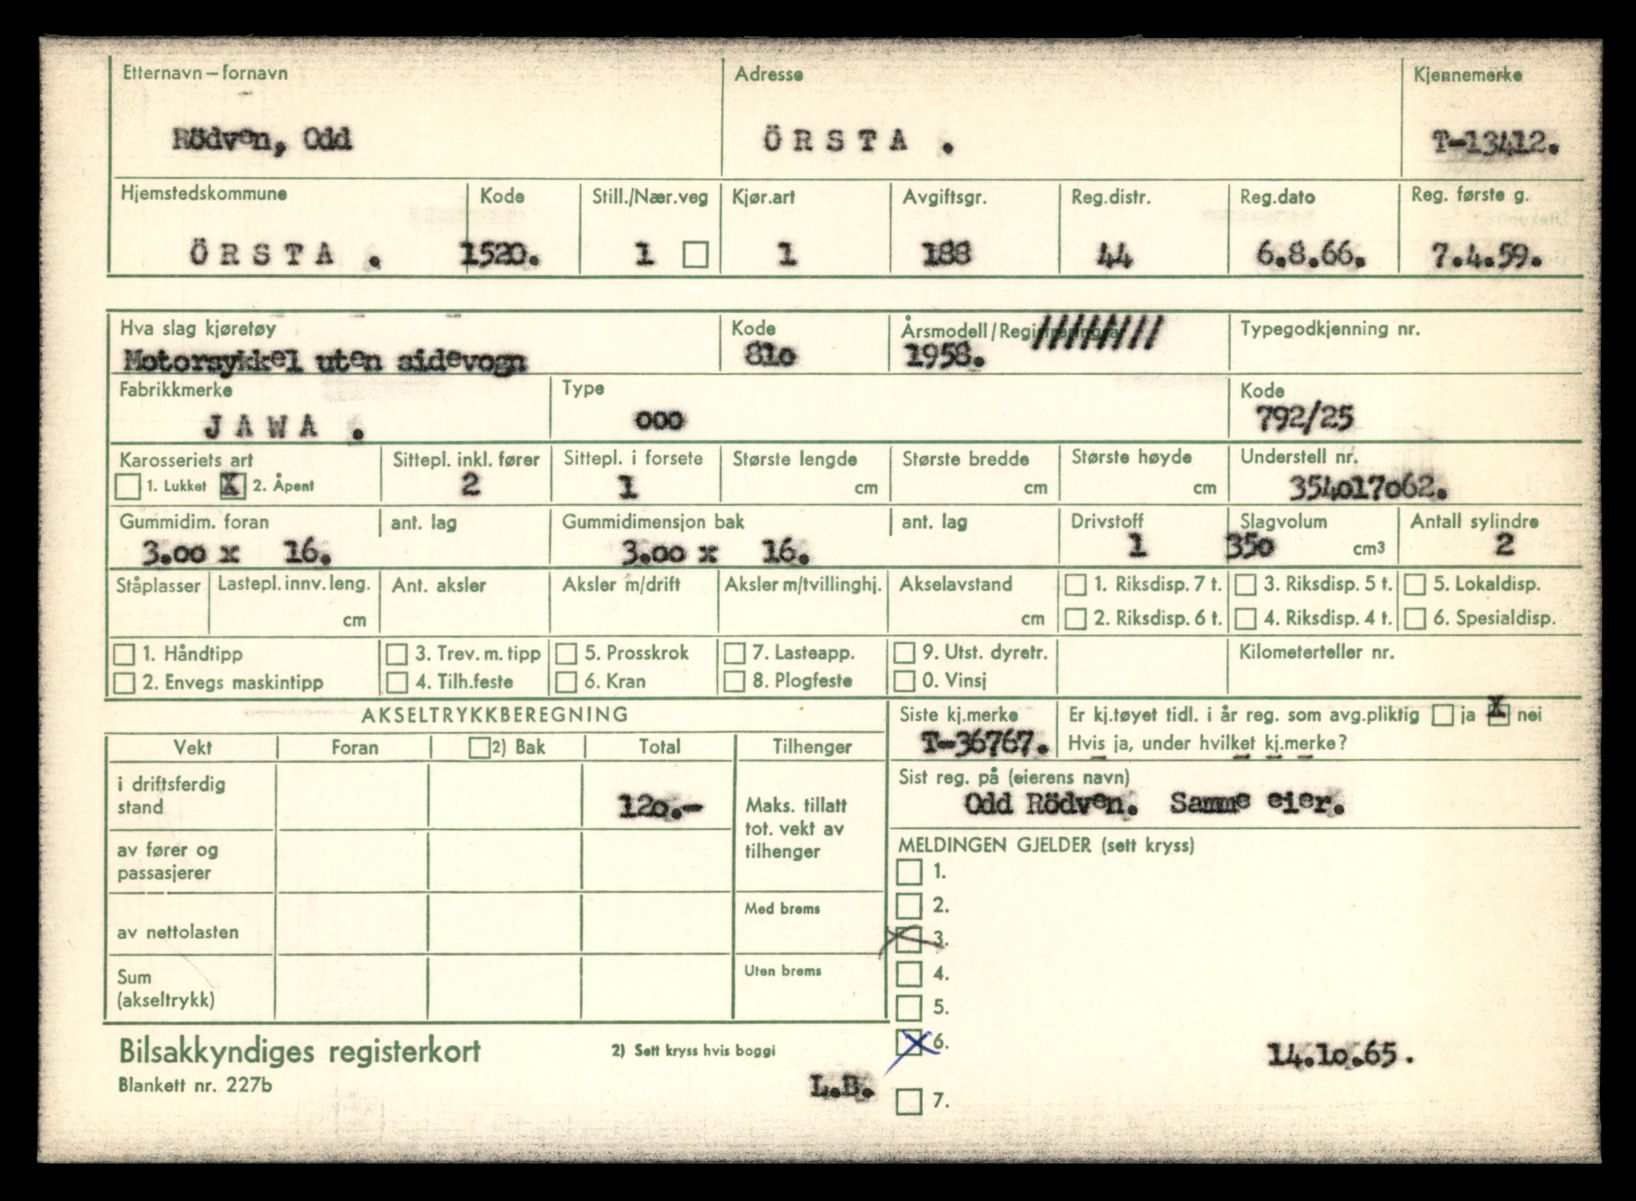 Etternavn – fornavn Adresse Kjennemerke
Rödven, Odd ÖRSTA . T-13412.
Hjemstedskommune Kode Still./Nær.veg Kjør.art Avgiftsgr. Reg.distr. Reg.dato Reg. første g.
ÖRSTA . 1520. 1 1 188 44 6.8.66. 7.4.59.
Hva slag kjøretøy Kode Årsmodell/Registreringsår Typegodkjenning nr.
Motorsykkel uten sidevogn 81o 1958.
Fabrikkmerke Type Kode
JAWA . ooo 792/25
Karosseriets art Sittepl. inkl. fører Sittepl. i forsete Største lengde Største bredde Største høyde Understell nr.
1. Lukket X 2. Åpent 2 1 cm cm cm 354o17o62.
Gummidim. foran ant. lag Gummidimensjon bak ant. lag Drivstoff Slagvolum Antall sylindre
3.oo x 16. 3.oo x 16. 1 35o cm3 2
Ståplasser Lastepl. innv. leng. Ant. aksler Aksler m/drift Aksler m/tvillinghj. Akselavstand 1. Riksdisp. 7 t. 3. Riksdisp. 5 t. 5. Lokaldisp.
cm cm 2. Riksdisp. 6 t. 4. Riksdisp. 4 t. 6. Spesialdisp.
1. Håndtipp 3. Trev. m. tipp 5. Prosskrok 7. Lasteapp. 9. Utst. dyretr. Kilometerteller nr.
2. Envegs maskintipp 4. Tilh.feste 6. Kran 8. Plogfeste 0. Vinsj
AKSELTRYKKBEREGNING Siste kj.merke Er kj.tøyet tidl. i år reg. som avg.pliktig ja X nei
Vekt Foran 2) Bak Total Tilhenger T-36767. Hvis ja, under hvilket kj.merke?
i driftsferdig stand 12o.- Maks. tillatt tot. vekt av tilhenger
Sist reg. på (eierens navn)
Odd Rödven. Samme eier.
av fører og passasjerer
MELDINGEN GJELDER (sett kryss)
1.
Med brems 2.
av nettolasten X 3.
Uten brems 4.
Sum (akseltrykk) 5.
Bilsakkyndiges registerkort 2) Sett kryss hvis boggi X 6. 14.1o.65.
Blankett nr. 227b L.B. 7.